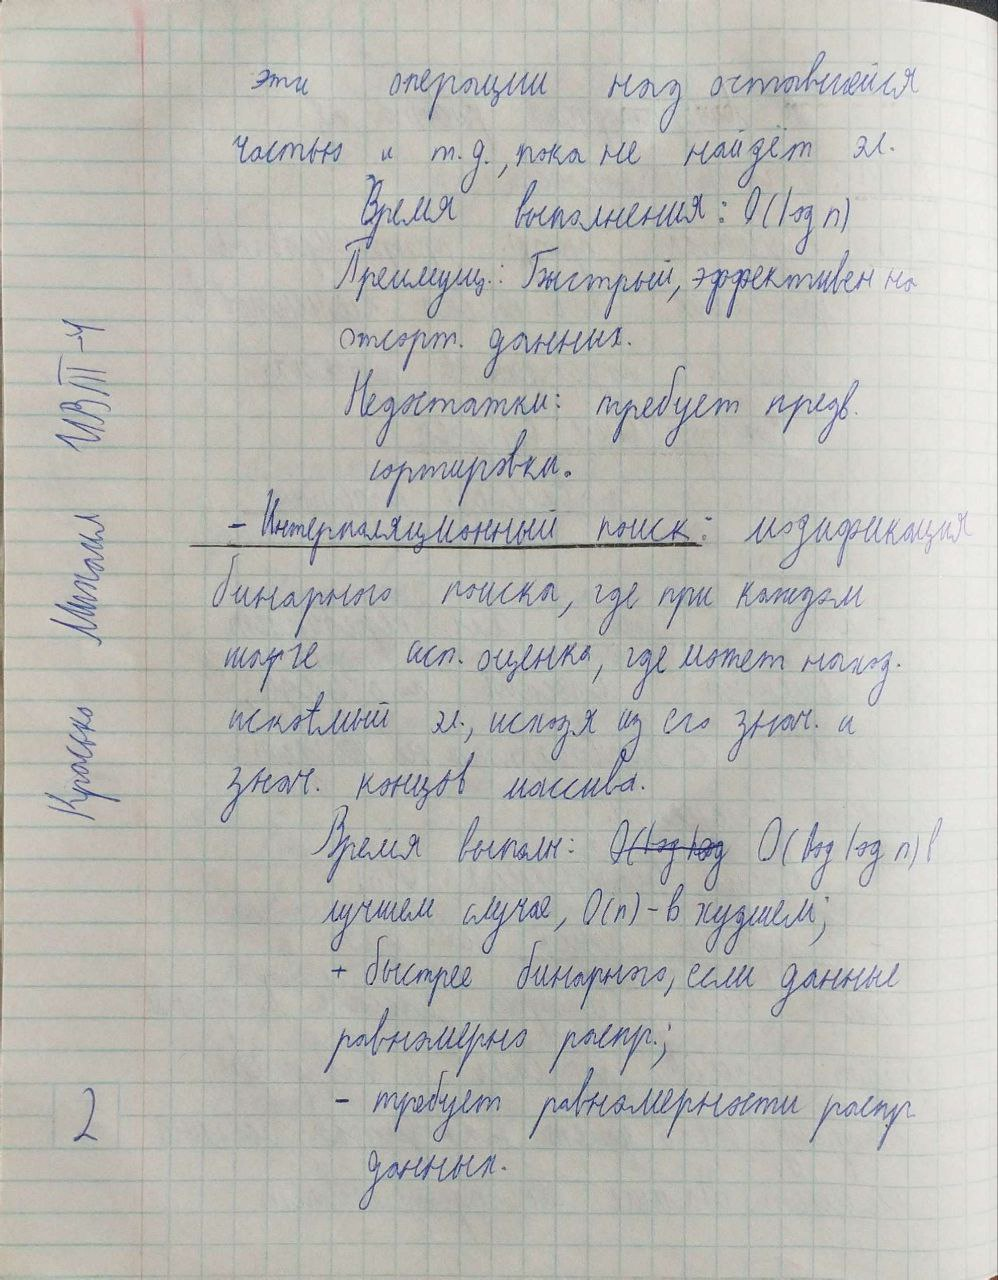 эти операции над оставшейся
частью и т.д., пока не найдёт эл.
Время выполнения: O(log n)
Преимущ.: Быстрый, эффективен на
отсорт. данных.
Недостатки: требует предв.
сортировки.
- Интерполяционный поиск: модификация
бинарного поиска, где при каждом
шаге исп. оценка, где может наход.
искомый эл., исходя из его знач. и
знач. концов массива.
Время выполн: O(log log O(log log n) в
лучшем случае, O(n) - в худшем;
+ быстрее бинарного, если данные
равномерно распр.;
- требует равномерности распр
данных.
Михаил ИВТ-4
2